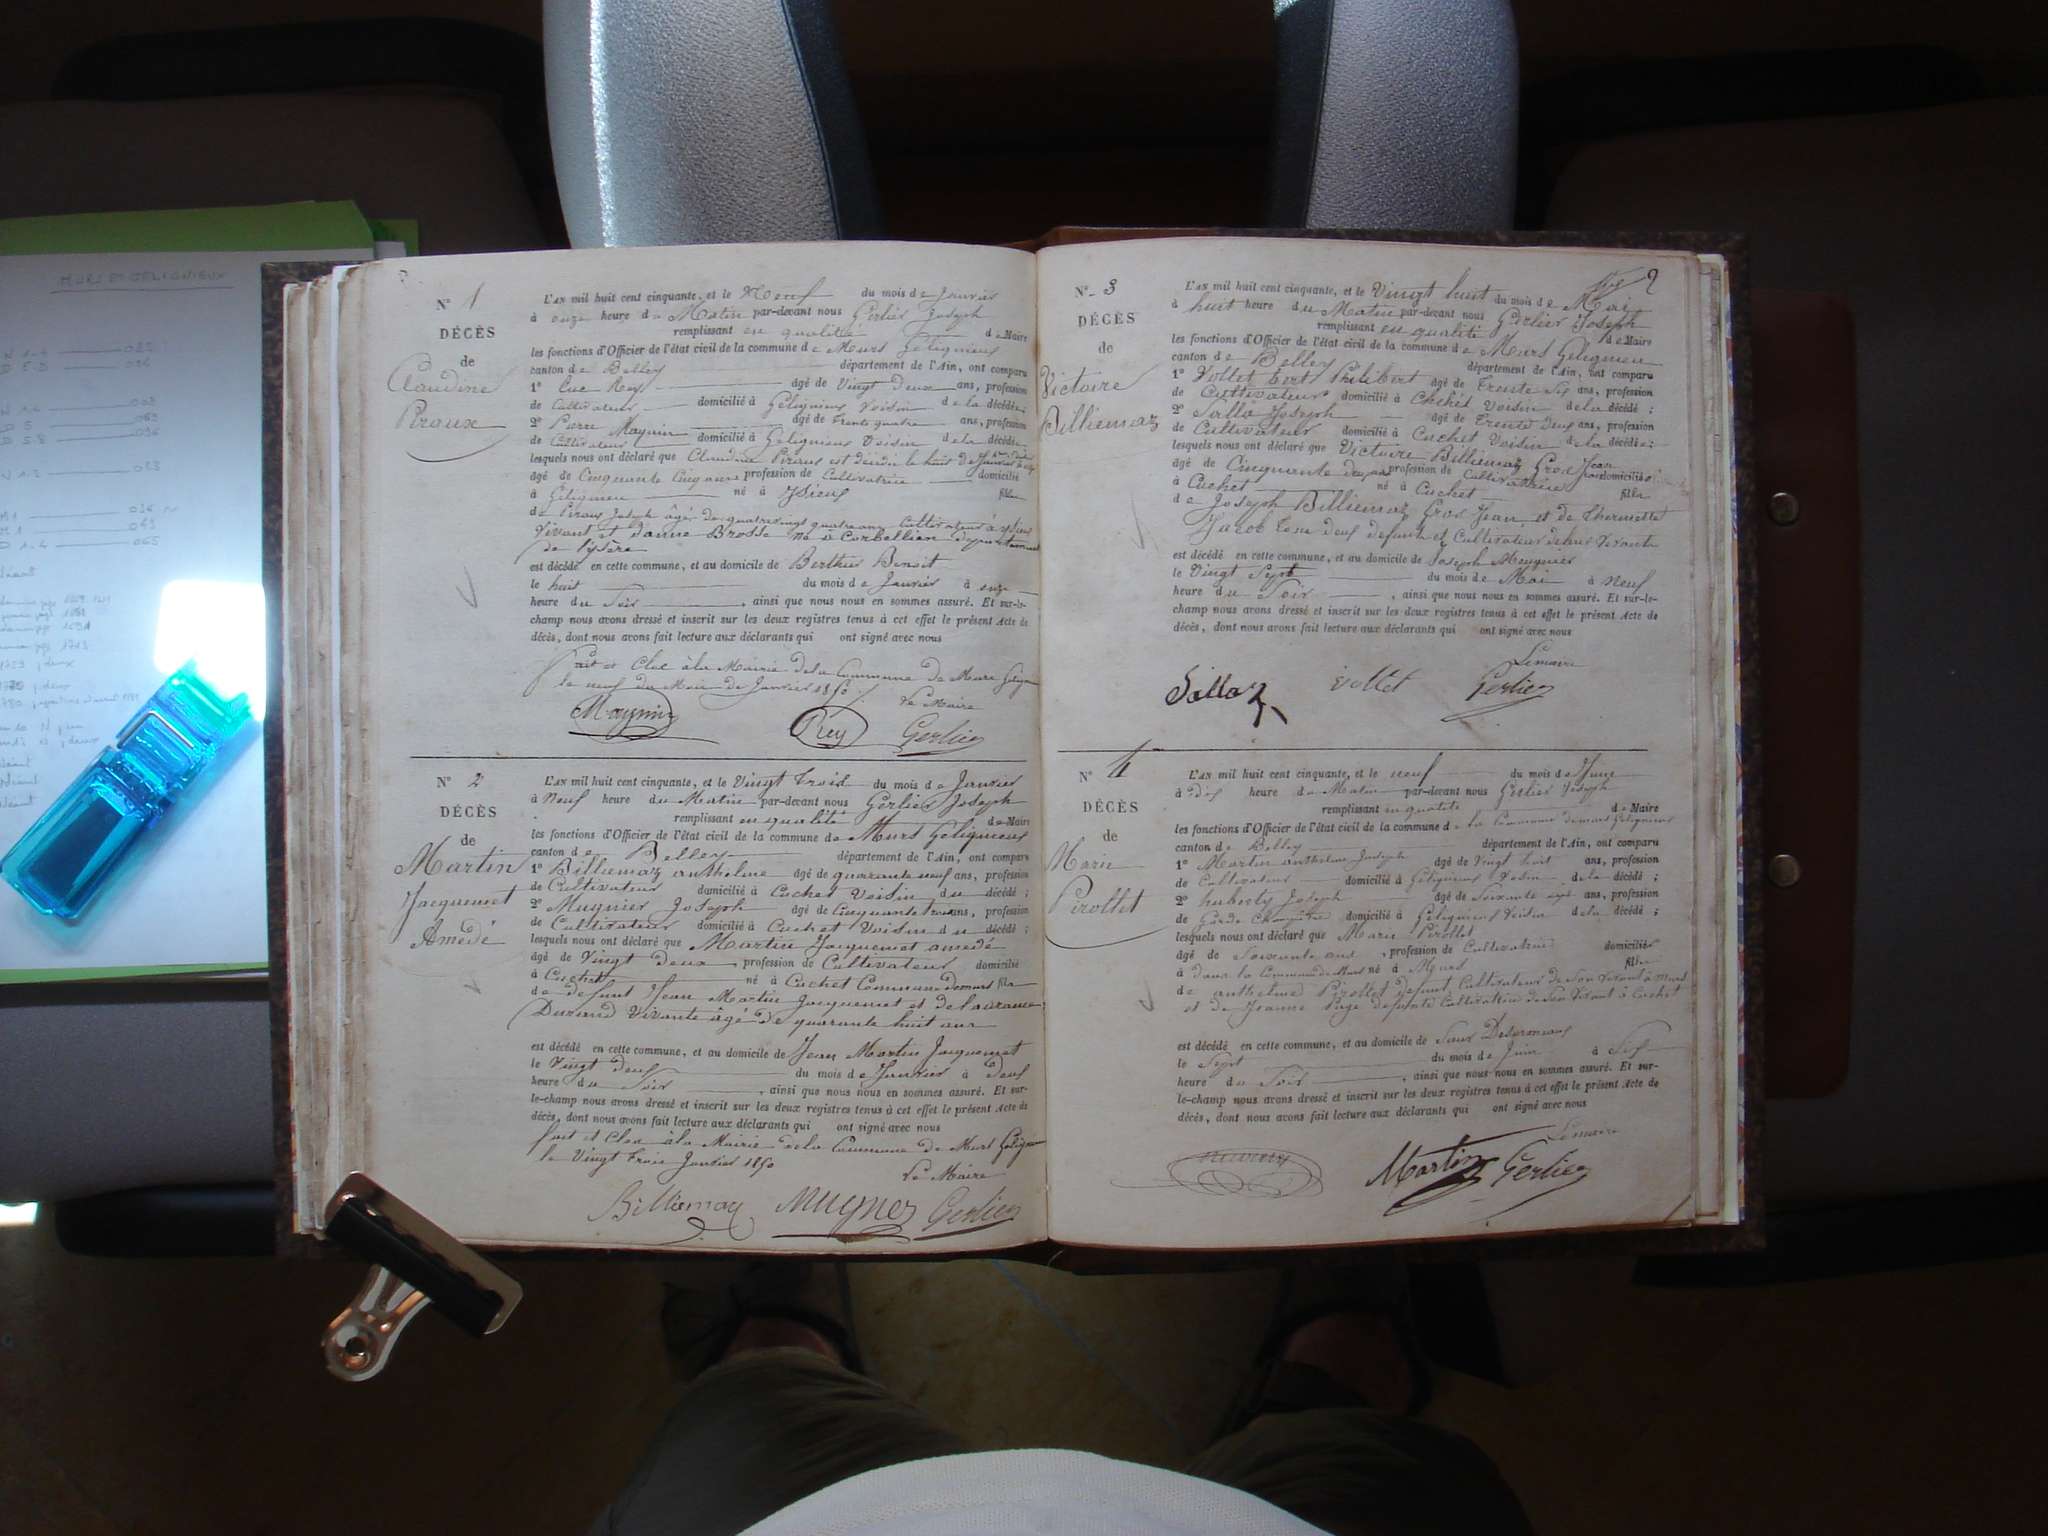 MURS ET GELIGNIEUX
N° 1
DÉCÈS
de
Claudine
Piraux
L'AN mil huit cent cinquante, et le Neuf du mois de Janvier
à onze heure du Matin par-devant nous Gerlier Joseph
remplissant en qualité de Maire
les fonctions d'Officier de l'état civil de la commune de Murs Gelignieux
canton de Belley département de l'Ain, ont comparu
1° Luc Rey âgé de Vingt deux ans, profession
de Cultivateur domicilié à Gelignieux Voisin de la décédée;
2° Pierre Maynin âgé de trente quatre ans, profession
de Cultivateur domicilié à Gelignieux Voisin de la décédée
lesquels nous ont déclaré que Claudine Piraux est décédée le huit de Janvier
âgé de Cinquante Cinq ans profession de Cultivatrice domicilié
à Gelignieu né à Ysieux fille
de Piraux Joseph âgé de quatrevingt quatre ans Cultivateur à Ysieux
Vivant et d'anne Brosse né à Corbellian Département
de l'ysère
est décédé en cette commune, et au domicile de Berthier Benoit
le huit du mois de Janvier à onze
heure du Soir , ainsi que nous nous en sommes assuré. Et sur-le-
champ nous avons dressé et inscrit sur les deux registres tenus à cet effet le présent Acte de
décès, dont nous avons fait lecture aux déclarants qui ont signé avec nous
Fait et Clos à la Mairie de la Commune de Murs Gelignieu
le neuf du Mois de Janvier 1850
Le Maire
Maynin Rey Gerlier
N° 2
DÉCÈS
de
Martin
Jacquemet
Amedé
L'AN mil huit cent cinquante, et le Vingt trois du mois de Janvier
à Neuf heure du Matin par-devant nous Gerlier Joseph
remplissant en qualité de Maire
les fonctions d'Officier de l'état civil de la commune de Murs Gelignieux
canton de Belley département de l'Ain, ont comparu
1° Billiemaz anthelme âgé de quarante neuf ans, profession
de Cultivateur domicilié à Cuchet Voisin du décédé;
2° Mugnier Joseph âgé de Cinquante trois ans, profession
de Cultivateur domicilié à Cuchet Voisin du décédé;
lesquels nous ont déclaré que Martin Jacquemet amedé
âgé de Vingt deux , profession de Cultivateur domicilié
à Cuchet né à Cuchet Commune de murs fils
de defunt Jean Martin Jacquemet et de laurance
Durand Vivante âgé de quarante huit ans
est décédé en cette commune, et au domicile de Jean Martin Jacquemet
le Vingt deux du mois de Janvier à Deux
heure du Soir , ainsi que nous nous en sommes assuré. Et sur-
le-champ nous avons dressé et inscrit sur les deux registres tenus à cet effet le présent Acte de
décès, dont nous avons fait lecture aux déclarants qui ont signé avec nous
fait et Clos à la Mairie de la Commune de Murs Gelignieu
le Vingt trois Janvier 1850
Le Maire
Billiemaz Mugner Gerlier
2
N° 3
DÉCÈS
de
Victoire
Billiemaz
L'AN mil huit cent cinquante, et le Vingt huit du mois de Mai
à huit heure du Matin par-devant nous Gerlier Joseph
remplissant en qualité de Maire
les fonctions d'Officier de l'état civil de la commune de Murs Gelignieu
canton de Belley département de l'Ain, ont comparu
1° Vollet bert Philibert âgé de trente Six ans, profession
de Cultivateur domicilié à Cuchet Voisin de la décédé;
2° Salla Joseph âgé de trente Deux ans, profession
de Cultivateur domicilié à Cuchet Voisin de la décédé;
lesquels nous ont déclaré que Victoire Billiemaz Gros Jean
âgé de Cinquante deux ans profession de Cultivatrice domicilié
à Cuchet né à Cuchet fille
de Joseph Billiemaz Gros Jean et de thermette
Jacob tous deux defunts et Cultivateur de leur Vivante
est décédé en cette commune, et au domicile de Joseph Meugnier
le Vingt Sept du mois de Mai à Neuf
heure du Soir , ainsi que nous nous en sommes assuré. Et sur-le-
champ nous avons dressé et inscrit sur les deux registres tenus à cet effet le présent Acte de
décès, dont nous avons fait lecture aux déclarants qui ont signé avec nous
Le maire
Sallaz vollet Gerlier
N° 4
DÉCÈS
de
Marie
Pirollet
L'AN mil huit cent cinquante, et le neuf du mois de Juin
à dix heure du Matin par-devant nous Gerlier Joseph
remplissant en qualité de Maire
les fonctions d'Officier de l'état civil de la commune de la Commune de murs Gelignieux
canton de Belley département de l'Ain, ont comparu
1° Martin anthelme Joseph âgé de Vingt huit ans, profession
de Cultivateur domicilié à Gelignieux Voisin de la décédé;
2° huberty Joseph âgé de Soixante six ans, profession
de Garde Champetre domicilié à Gelignieux Voisin de la décédé;
lesquels nous ont déclaré que Marie Pirollet
âgé de Soixante ans , profession de Cultivatrice domicilié
à dans la Commune de Murs né à Murs fille
de anthelme Pirollet defunt Cultivateur de Son Vivant à murs
et de Jeanne Page defunte Cultivatrice de Son Vivant à Cuchet
est décédé en cette commune, et au domicile de
le Sept du mois de Juin à Six
heure du Soir , ainsi que nous nous en sommes assuré. Et sur-
le-champ nous avons dressé et inscrit sur les deux registres tenus à cet effet le présent Acte de
décès, dont nous avons fait lecture aux déclarants qui ont signé avec nous
Le maire
Martin Gerlier